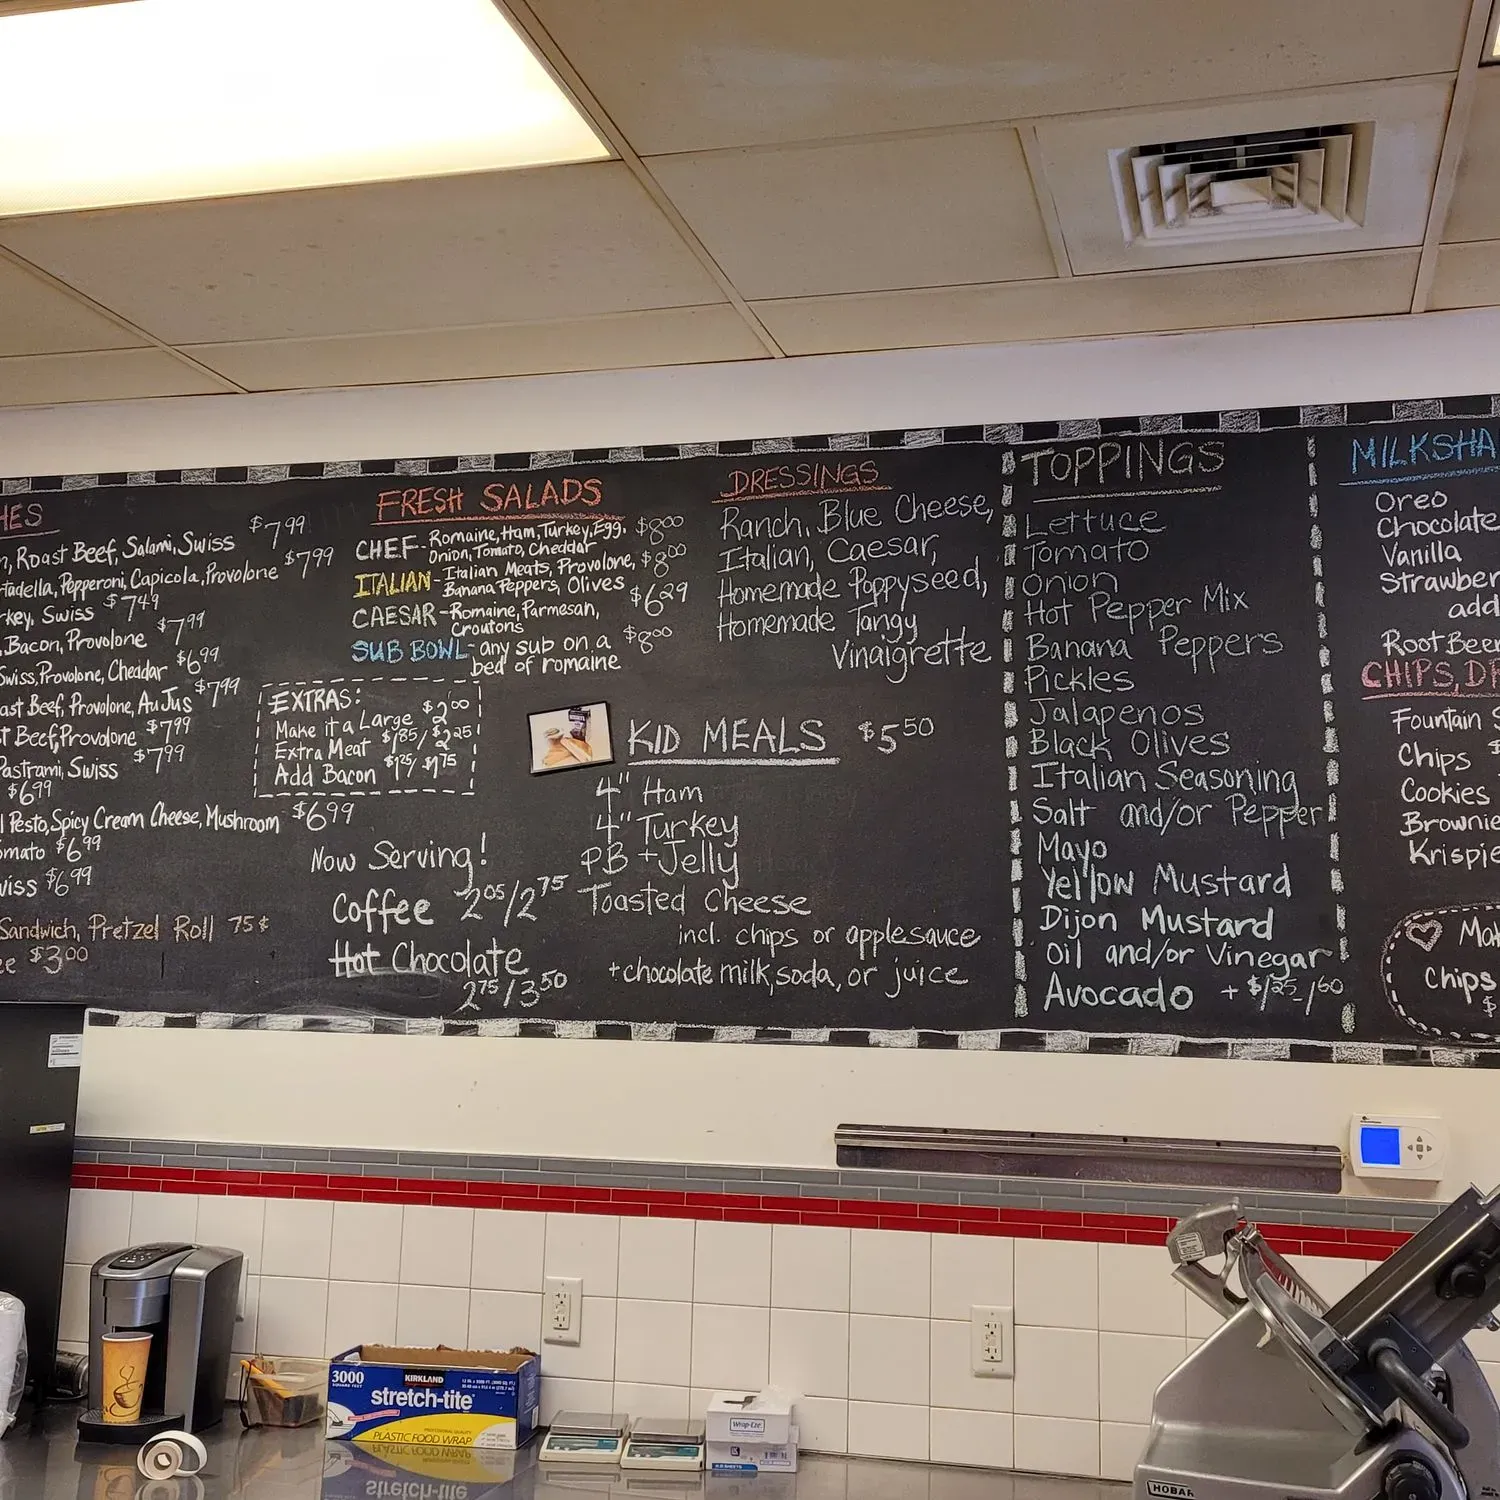 HES
n, Roast Beef, Salami, Swiss $7.99
tadella, Pepperoni, Capicola, Provolone $7.99
rkey, Swiss $7.49
, Bacon, Provolone $7.99
Swiss, Provolone, Cheddar $6.99
ast Beef, Provolone, Au Jus $7.99
t Beef, Provolone $7.99
Pastrami, Swiss $7.99
$6.99
l Pesto, Spicy Cream Cheese, Mushroom $6.99
omato $6.99
wiss $6.99
Sandwich, Pretzel Roll 75¢
ee $3.00
FRESH SALADS
CHEF - Romaine, Ham, Turkey, Egg, $8.00
Onion, Tomato, Cheddar
ITALIAN - Italian Meats, Provolone, $8.00
Banana Peppers, Olives
CAESAR - Romaine, Parmesan, $6.29
Croutons
SUB BOWL - any sub on a $8.00
bed of romaine
EXTRAS:
Make it a Large $2.00
Extra Meat $1.85/$2.25
Add Bacon $1.25/$1.75
Now Serving!
Coffee 2.05/2.75
Hot Chocolate
2.75/3.50
DRESSINGS
Ranch, Blue Cheese,
Italian, Caesar,
Homemade Poppyseed,
Homemade Tangy
Vinaigrette
KID MEALS $5.50
4" Ham
4" Turkey
PB + Jelly
Toasted Cheese
incl. chips or applesauce
+ chocolate milk, soda, or juice
TOPPINGS
Lettuce
Tomato
Onion
Hot Pepper Mix
Banana Peppers
Pickles
Jalapenos
Black Olives
Italian Seasoning
Salt and/or Pepper
Mayo
Yellow Mustard
Dijon Mustard
Oil and/or Vinegar
Avocado + $1.25-1.60
MILKSHA
Oreo
Chocolate
Vanilla
Strawber
add
Root Beer
CHIPS, DR
Fountain S
Chips $
Cookies
Brownie
Krispie
Mak
Chips
$
3000
SQUARE FEET
KIRKLAND
stretch-tite
PLASTIC FOOD WRAP
Wrap-Eze
HOBAR